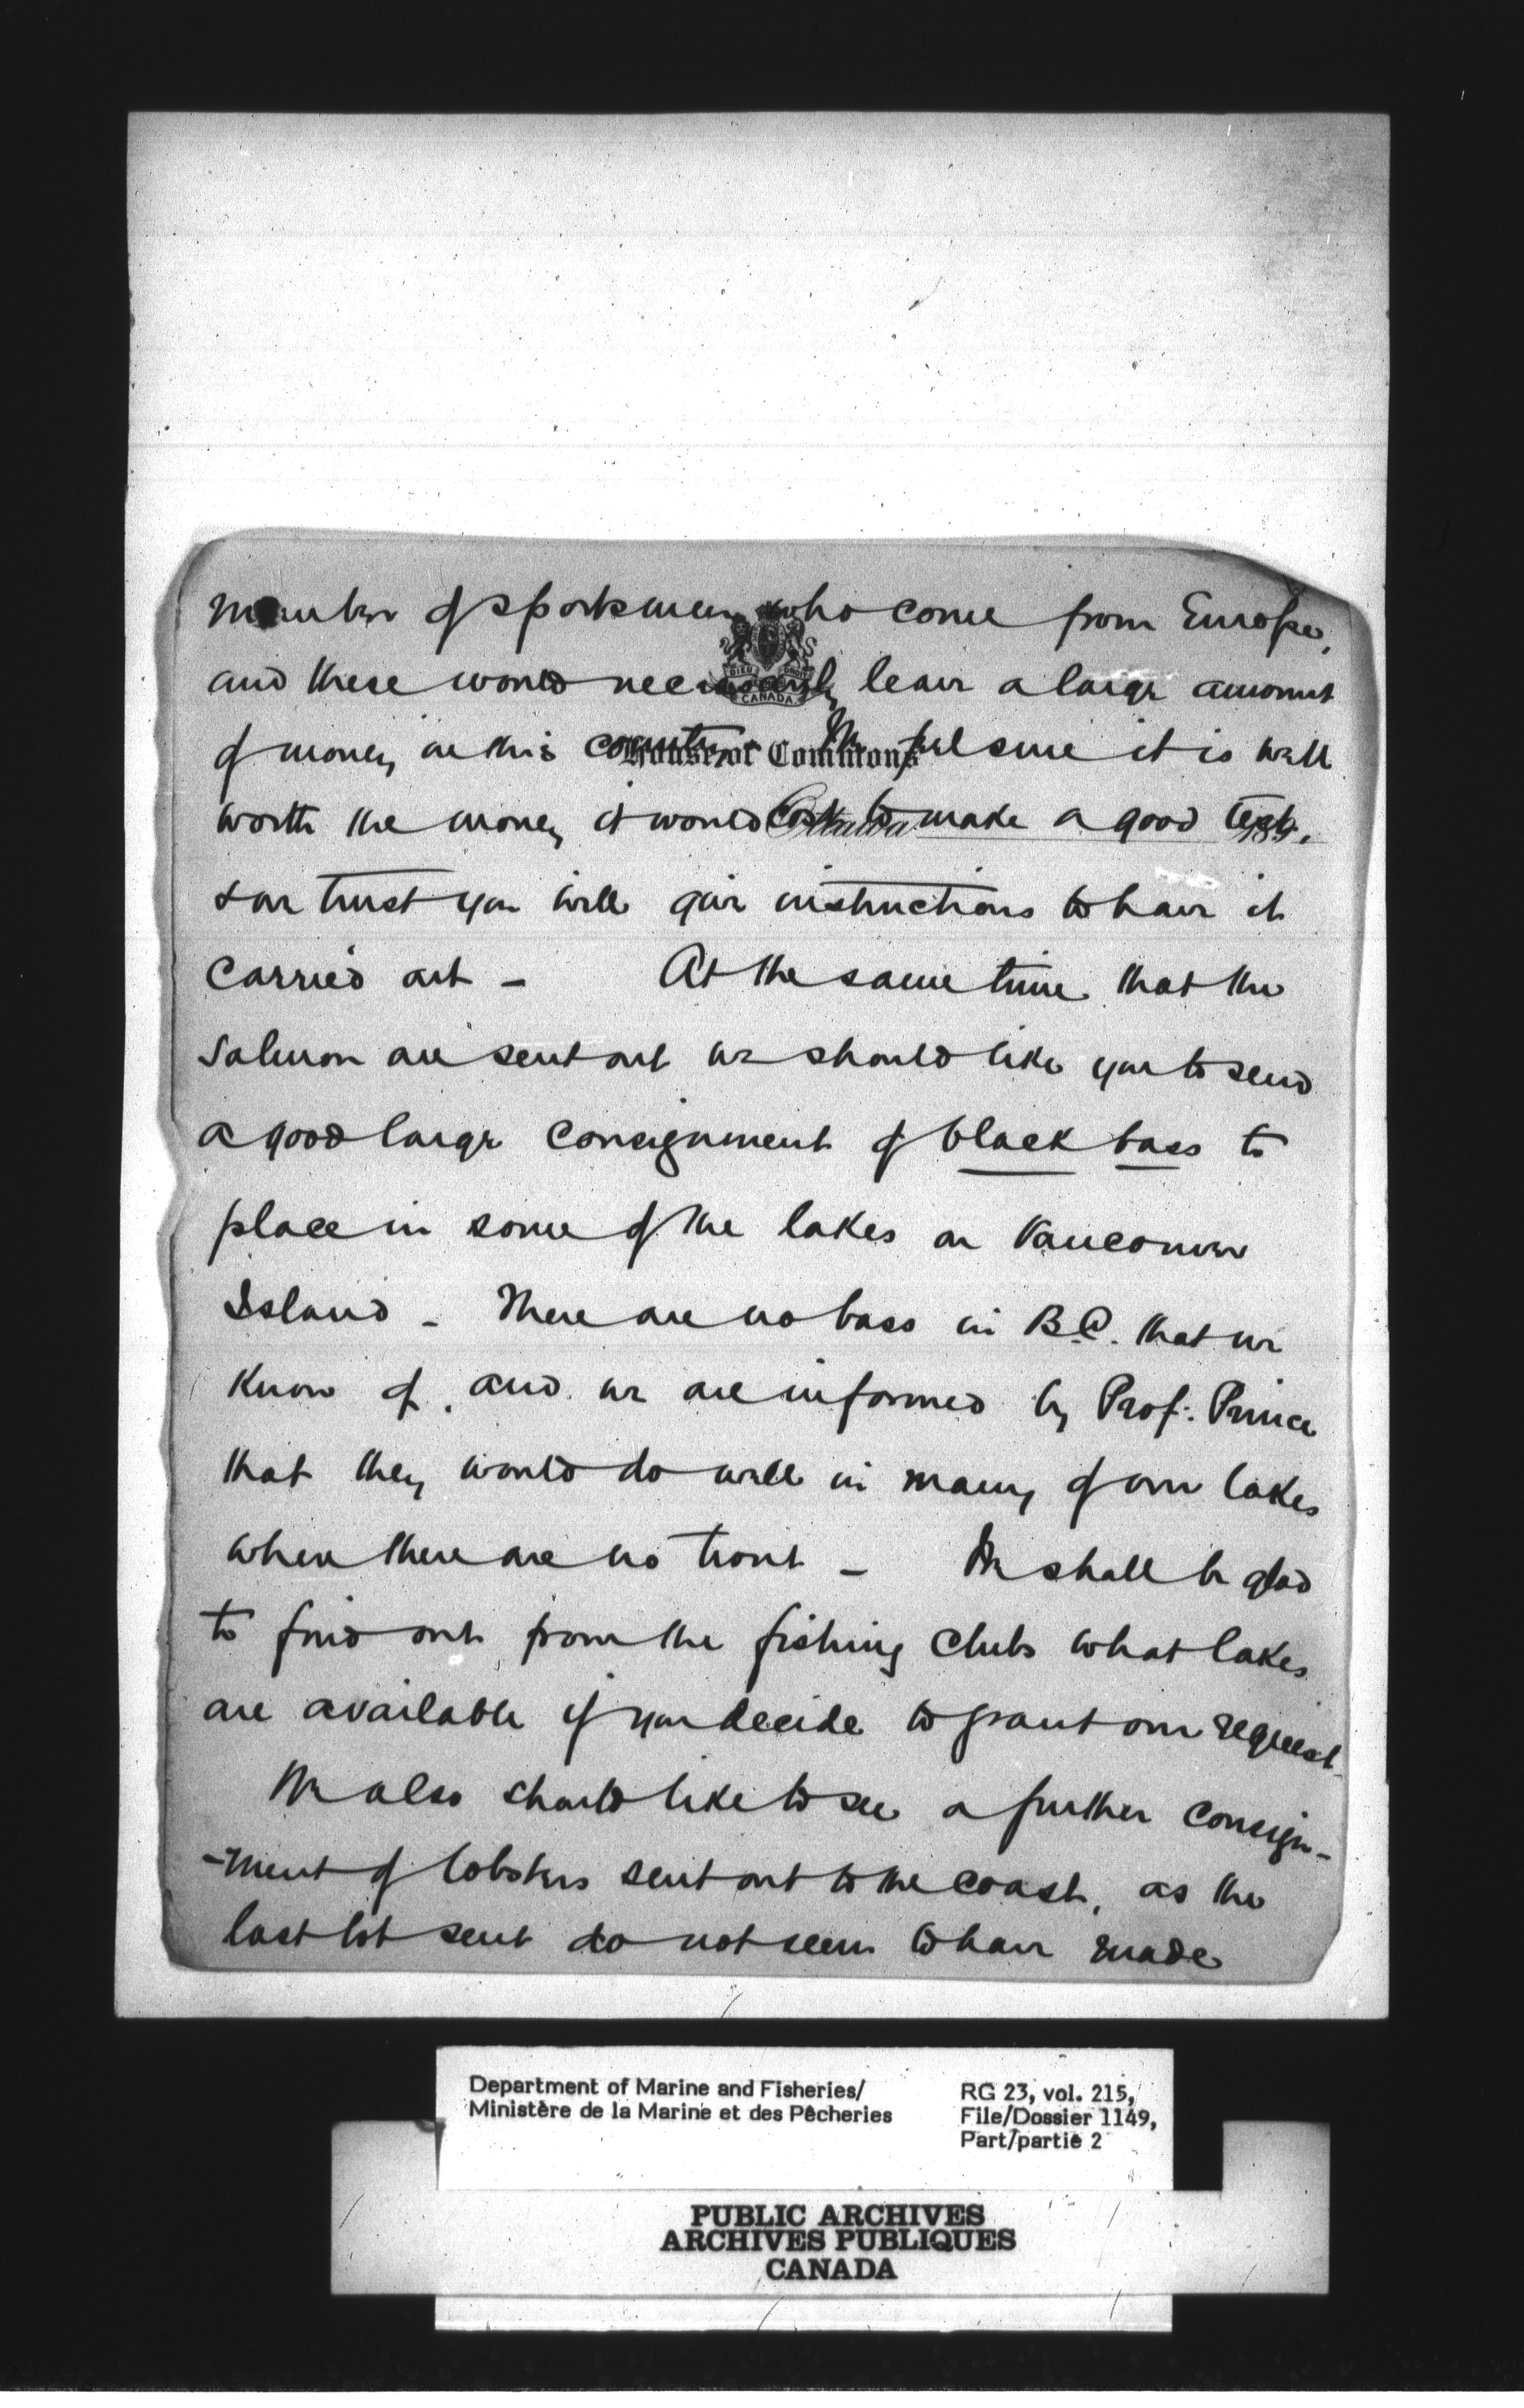 number of sportsmen who come from Europe,
and these would necessarily leave a large amount
of money in this country. We feel sure it is well
worth the money it would cost to make a good test,
& we trust you will give instructions to have it
carried out – At the same time that the
salmon are sent out we should like you to send
a good large consignment of black bass to
place in some of the lakes on Vancouver
Island – There are no bass in B.C. that we
know of, and we are informed by Prof. Prince
that they would do well in many of our lakes
where there are no trout – We shall be glad
to find out from the fishing clubs what lakes
are available if you decide to grant our request.
We also should like to see a further consign-
-ment of lobsters sent out to the coast, as the
last lot sent do not seem to have made
DIEU ET MON DROIT
CANADA
House of Commons
Ottawa
Department of Marine and Fisheries/
Ministère de la Marine et des Pêcheries
RG 23, vol. 215,
File/Dossier 1149,
Part/partie 2
PUBLIC ARCHIVES
ARCHIVES PUBLIQUES
CANADA